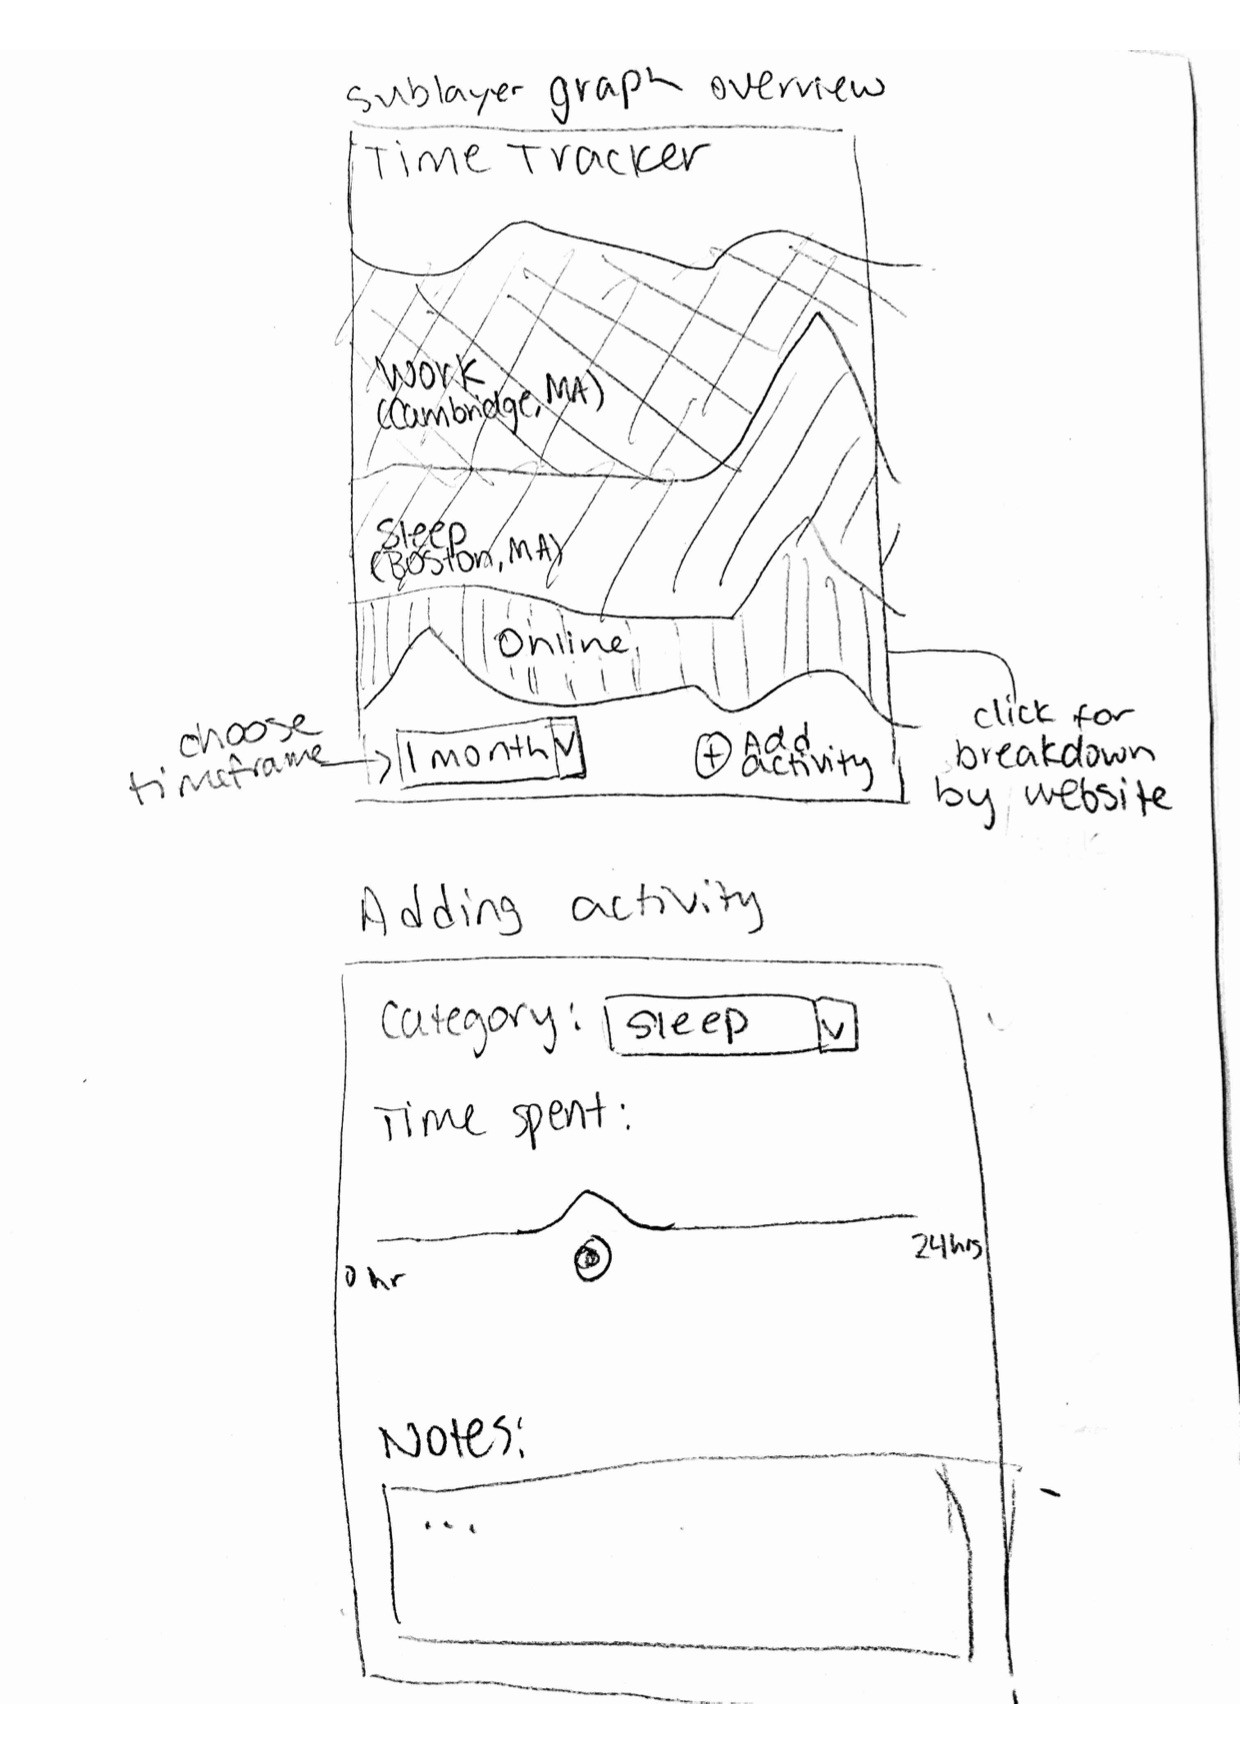 sublayer graph overview
Time Tracker
Work
(Cambridge, MA)
Sleep
(Boston, MA)
Online
choose
timeframe
1 month
Add
activity
click for
breakdown
by website
Adding activity
Category: Sleep
Time spent:
0 hr
24hrs
Notes:
...